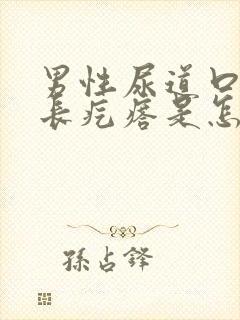 男性尿道口
长疙瘩是怎
孫占鋒